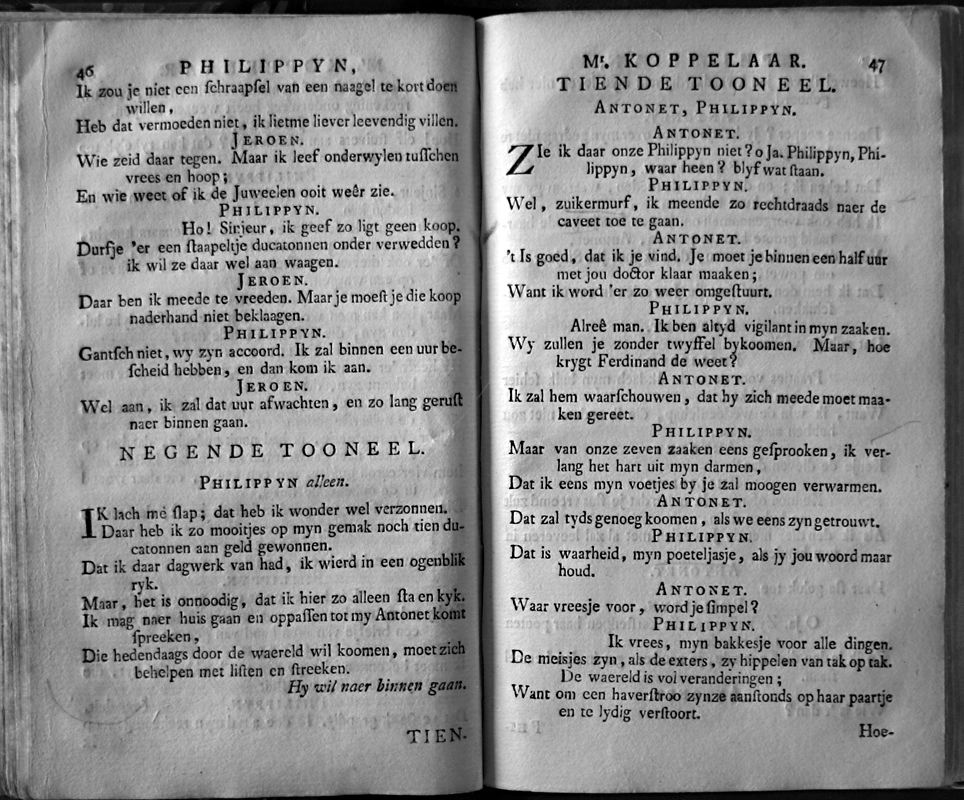 46
PHILIPPYN,
Ik zou je niet een ſchraapſel van een naagel te kort doen
willen,
Heb dat vermoeden niet, ik lietme liever leevendig villen.
JEROEN.
Wie zeid daar tegen. Maar ik leef onderwylen tuſſchen
vrees en hoop;
En wie weet of ik de Juweelen ooit weêr zie.
PHILIPPYN.
Ho! Sinjeur, ik geef zo ligt geen koop.
Durfje 'er een ſtaapeltje ducatonnen onder verwedden?
ik wil ze daar wel aan waagen.
JEROEN.
Daar ben ik meede te vreeden. Maar je moeſt je die koop
naderhand niet beklaagen.
PHILIPPYN.
Gantſch niet, wy zyn accoord. Ik zal binnen een uur be-
ſcheid hebben, en dan kom ik aan.
JEROEN.
Wel aan, ik zal dat uur afwachten, en zo lang geruſt
naer binnen gaan.
NEGENDE TOONEEL.
PHILIPPYN alleen.
IK lach me ſlap; dat heb ik wonder wel verzonnen.
Daar heb ik zo mooitjes op myn gemak noch tien du-
catonnen aan geld gewonnen.
Dat ik daar dagwerk van had, ik wierd in een ogenblik
ryk.
Maar, het is onnoodig, dat ik hier zo alleen ſta en kyk.
Ik mag naer huis gaan en oppaſſen tot my Antonet komt
ſpreeken,
Die hedendaags door de waereld wil koomen, moet zich
behelpen met liſten en ſtreeken.
Hy wil naer binnen gaan.
TIEN-
Mr. KOPPELAAR.
47
TIENDE TOONEEL.
ANTONET, PHILIPPYN.
ANTONET.
ZIe ik daar onze Philippyn niet? o Ja. Philippyn, Phi-
lippyn, waar heen? blyf wat ſtaan.
PHILIPPYN.
Wel, zuikermurf, ik meende zo rechtdraads naer de
caveet toe te gaan.
ANTONET.
't Is goed, dat ik je vind. Je moet je binnen een half uur
met jou doctor klaar maaken;
Want ik word 'er zo weer omgeſtuurt.
PHILIPPYN.
Alreê man. Ik ben altyd vigilant in myn zaaken.
Wy zullen je zonder twyffel bykoomen. Maar, hoe
krygt Ferdinand de weet?
ANTONET.
Ik zal hem waarſchouwen, dat hy zich meede moet maa-
ken gereet.
PHILIPPYN.
Maar van onze zeven zaaken eens geſprooken, ik ver-
lang het hart uit myn darmen,
Dat ik eens myn voetjes by je zal moogen verwarmen.
ANTONET.
Dat zal tyds genoeg koomen, als we eens zyn getrouwt.
PHILIPPYN.
Dat is waarheid, myn poeteljasje, als jy jou woord maar
houd.
ANTONET.
Waar vreesje voor, word je ſimpel?
PHILIPPYN.
Ik vrees, myn bakkesje voor alle dingen.
De meisjes zyn, als de exters, zy hippelen van tak op tak.
De waereld is vol veranderingen;
Want om een haverſtroo zynze aanſtonds op haar paartje
en te lydig verſtoort.
Hoe-